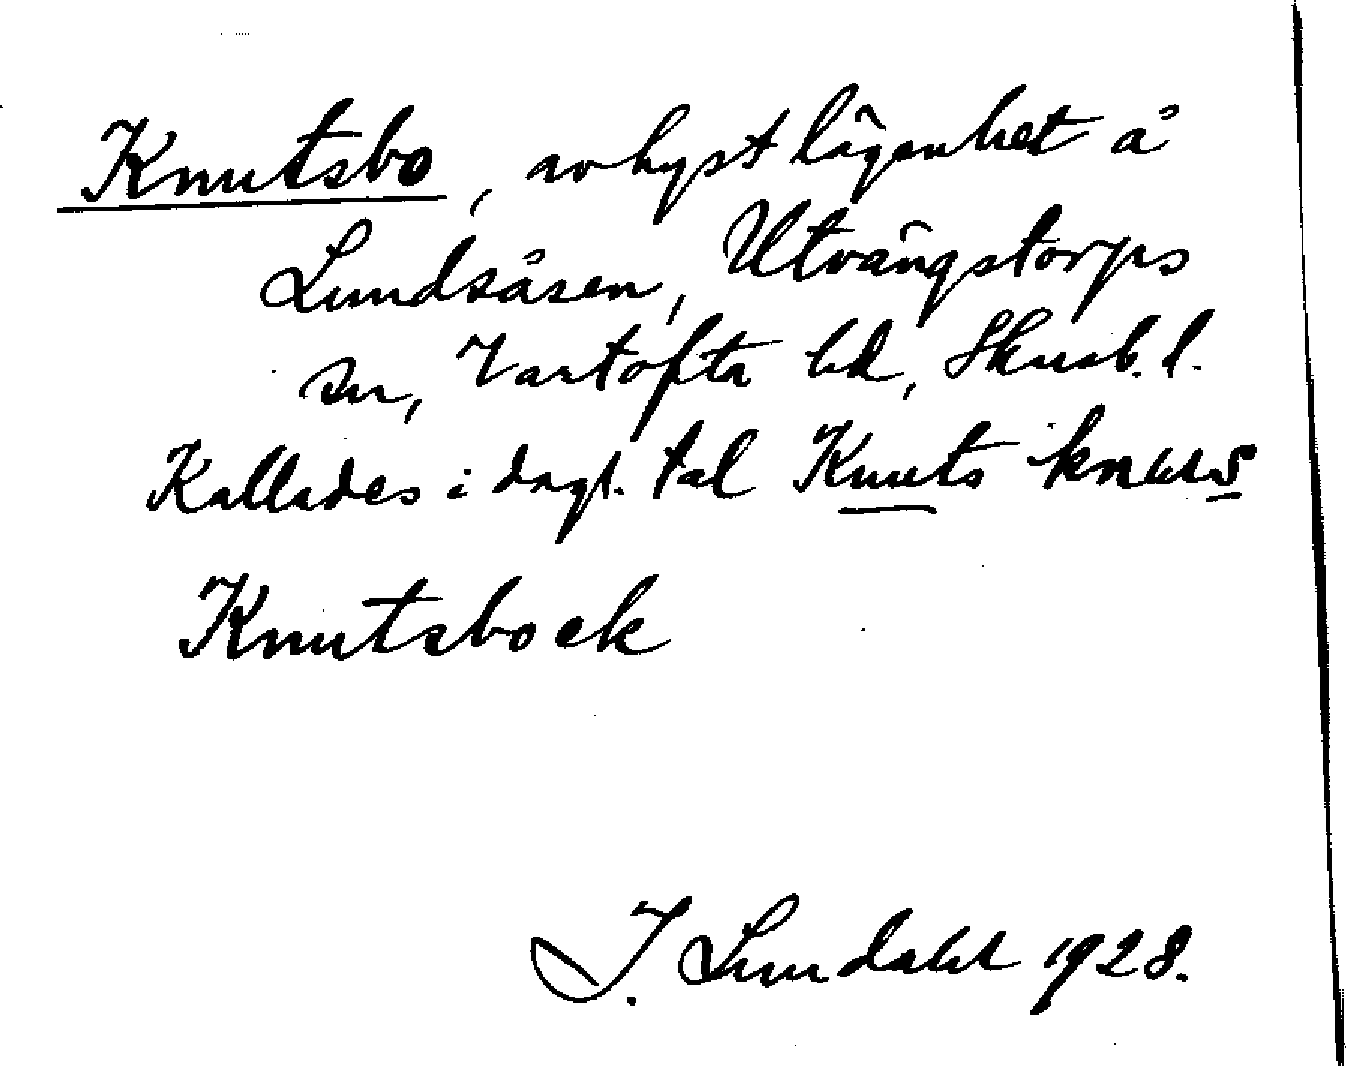 Knutsbo, avhyst lägenhet å
Lundsåsen, Utvängstorps
sn, Vartofta hd, Skarab. l.
Kallades i dagl. tal Knuts
Knutsboek
I. Lundahl 1928.